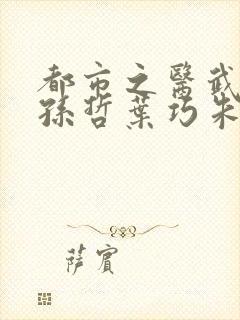 都市之醫武
孫哲葉巧朱
薩賓